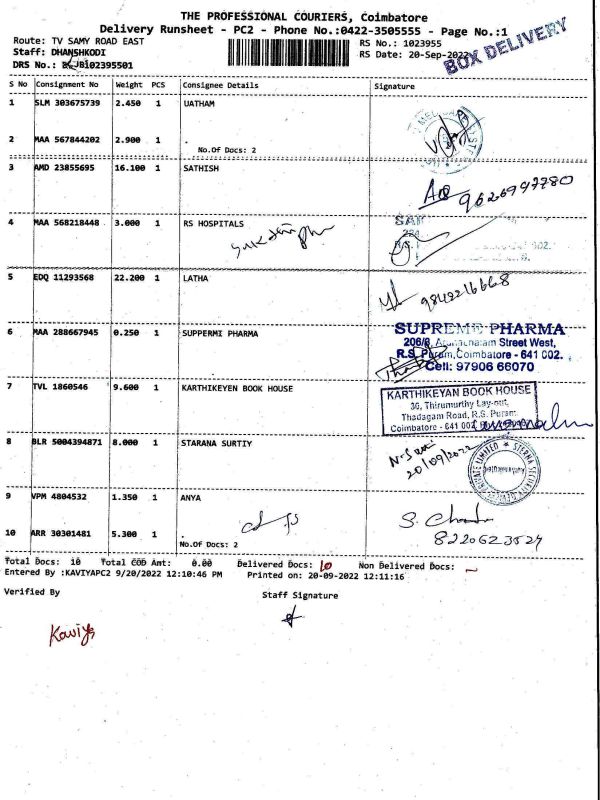 THE PROFESSIONAL COURIERS, Coimbatore
Delivery Runsheet - PC2 - Phone No.:0422-3505555 - Page No.:1
Route: TV SAMY ROAD EAST
RS No.: 1023955
Staff: DHANSHKODI
RS Date: 20-Sep-2022
BOX DELIVERY
DRS No.:
S No Consignment No Weight PCS Consignee Details Signature
1 SLM 303675739 2.450 1 UATHAM
2 MAA 567844202 2.900 1 .
No.Of Docs: 2
3 AMD 23855695 16.100 1 SATHISH
9626947780
4 MAA 568218448 3.000 1 RS HOSPITALS
5 EDQ 11293568 22.200 1 LATHA
9842216668
6 MAA 288667945 0.250 1 SUPPERMI PHARMA
SUPREME PHARMA
206/8, Arunachalam Street West,
R.S. Puram, Coimbatore - 641 002.
Cell: 97906 66070
7 TVL 1860546 9.600 1 KARTHIKEYEN BOOK HOUSE
KARTHIKEYAN BOOK HOUSE
36, Thirumurthy Lay-out,
Thadagam Road, R.S. Puram
Coimbatore - 641 002
8 BLR 5004394871 8.000 1 STARANA SURTIY
20/09/2022
9 VPM 4804532 1.350 1 ANYA
10 ARR 30301481 5.300 1 .
No.Of Docs: 2
8220623524
Total Docs: 10 Total COD Amt: 0.00 Delivered Docs: 10 Non Delivered Docs: -
Entered By :KAVIYAPC2 9/20/2022 12:10:46 PM Printed on: 20-09-2022 12:11:16
Verified By Staff Signature
Kaviya